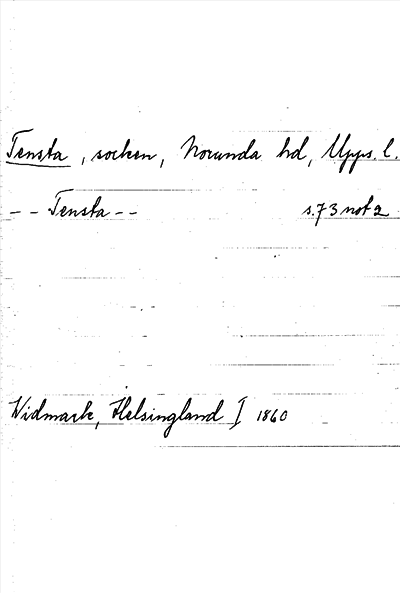 Tensta, socken, Norunda hd, Upps. l.
-- Tensta -- s. 73 not 2
Widmark, Helsingland I 1860